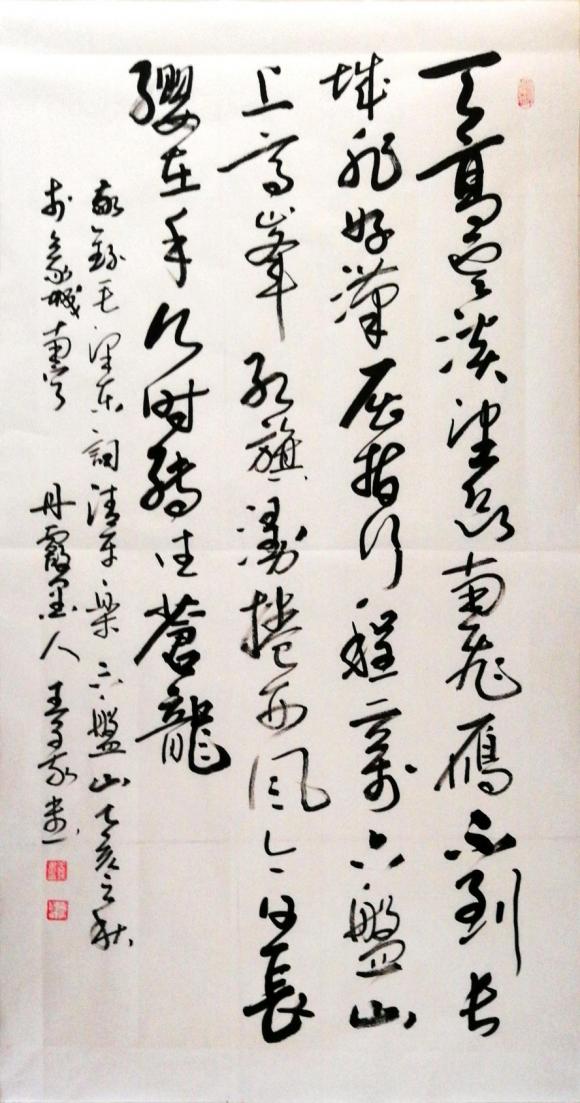 天高雲淡望断南飛雁不到长
城非好漢屈指行程二萬六盤山
上高峯红旗漫捲西風今日長
纓在手何时縛住蒼龍
敬録毛泽东詞清平樂六盤山亥之秋
於城南丹霞墨人